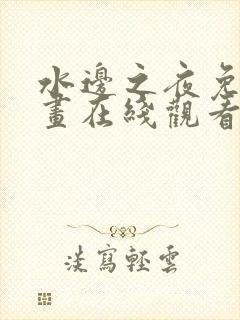 水邊之夜免
畫在綫觀看
淡寫輕雲